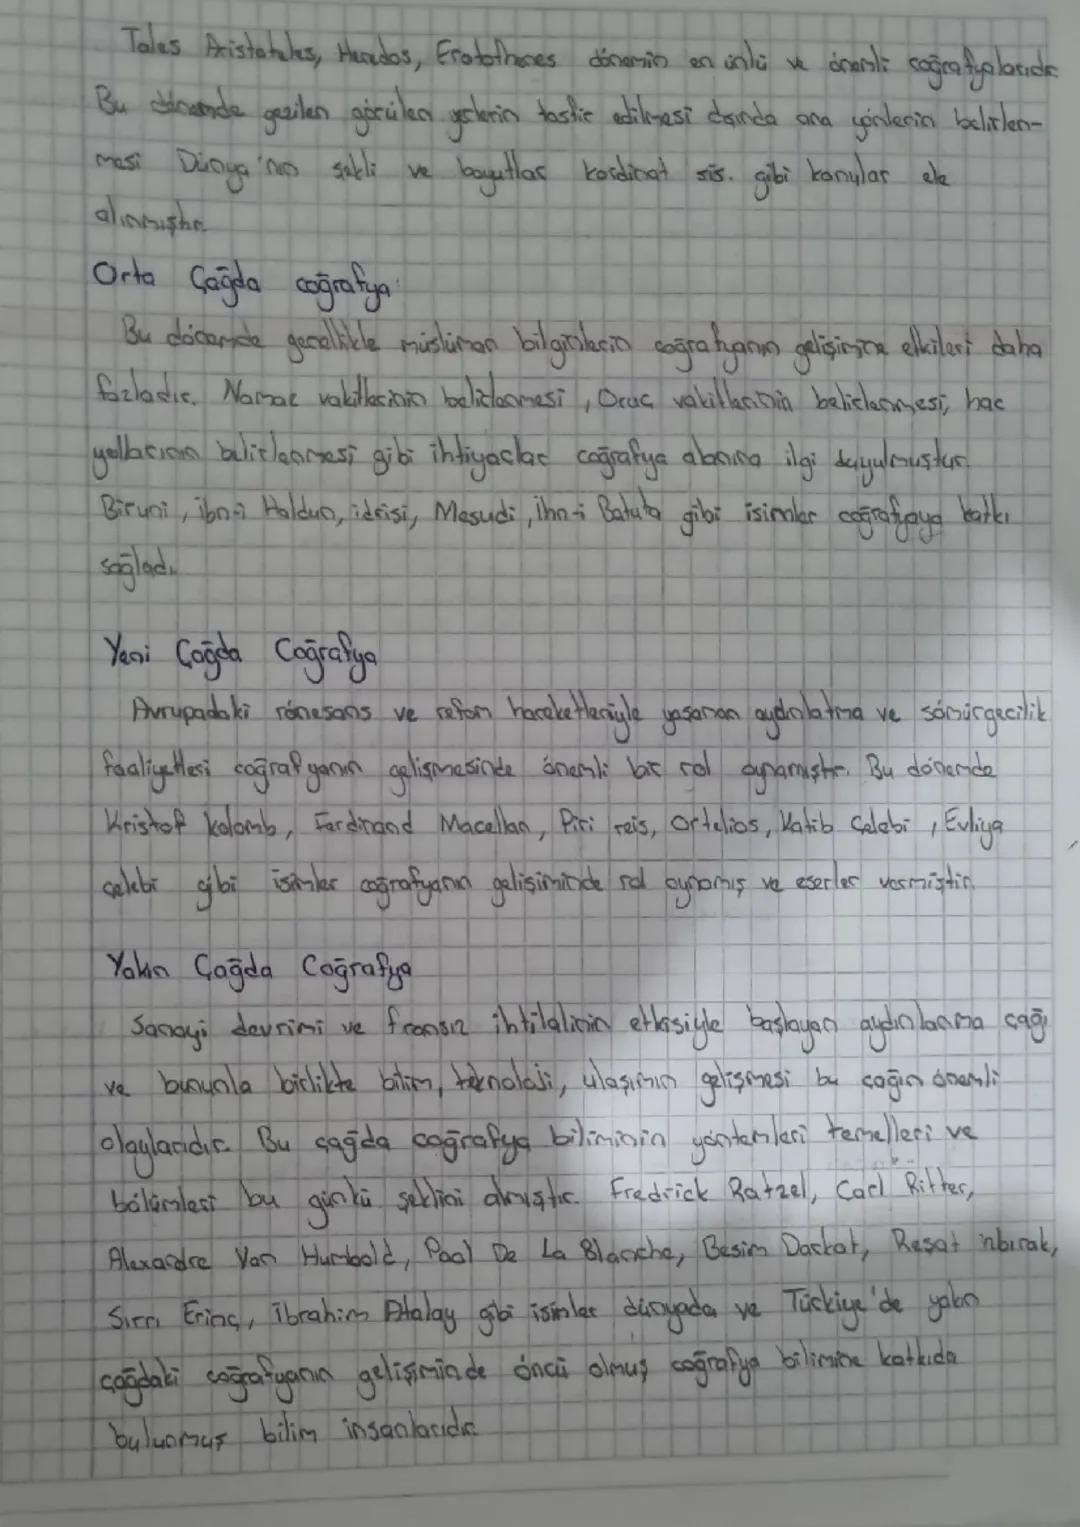 Tales Aristoteles, Heredos, Eratofhenes dönemin en ünlü ve önemli coğrafyalarıdır
Bu dönemde gezilen görülen yerlerin tasfir edilmesi dışında ana yönlerin belirlen-
mesi Dünya'nın şekli ve boyutlar kordinat sis. gibi konular ele
alınmıştır.
Orta Çağda coğrafya:
Bu dönemde genellikle müslüman bilginlerin coğrafyanın gelişimine etkileri daha
fazladır. Namaz vakitlerinin belirlenmesi, Oruç vakitlerinin belirlenmesi, hac
yollarının belirlenmesi gibi ihtiyaçlar coğrafya alanına ilgi duyulmuştur.
Biruni, ibn-i Haldun, idrisi, Mesudi, ibn-i Batuta gibi isimler coğrafyaya katkı
sağladı.
Yeni Çağda Coğrafya
Avrupadaki rönesans ve refom hareketleriyle yaşanan aydınlatma ve sömürgecilik
faaliyetleri coğrafyanın gelişmesinde önemli bir rol oynamıştır. Bu dönemde
Kristof kolomb, Ferdinand Macellan, Piri reis, Ortelios, Katib Çelebi, Evliya
çelebi gibi isimler coğrafyanın gelişiminde rol oynamış ve eserler vermiştir.
Yakın Çağda Coğrafya
Sanayi devrimi ve fransız ihtilalinin etkisiyle başlayan aydınlanma çağı
ve bununla birlikte bilim, teknoloji, ulaşımın gelişmesi bu çağın önemli
olaylarıdır. Bu çağda coğrafya biliminin yöntemleri temelleri ve
bölümleri bu günkü şeklini almıştır. Fredrick Ratzel, Carl Ritter,
Alexandre Van Humbold, Paol De La Blanche, Besim Darkot, Reşat ınbırak,
Sırrı Erinç, İbrahim Atalay gibi isimler dünyada ve Türkiye'de yakın
çağdaki coğrafyanın gelişiminde öncü olmuş coğrafya bilimine katkıda
bulunmuş bilim insanlarıdır.